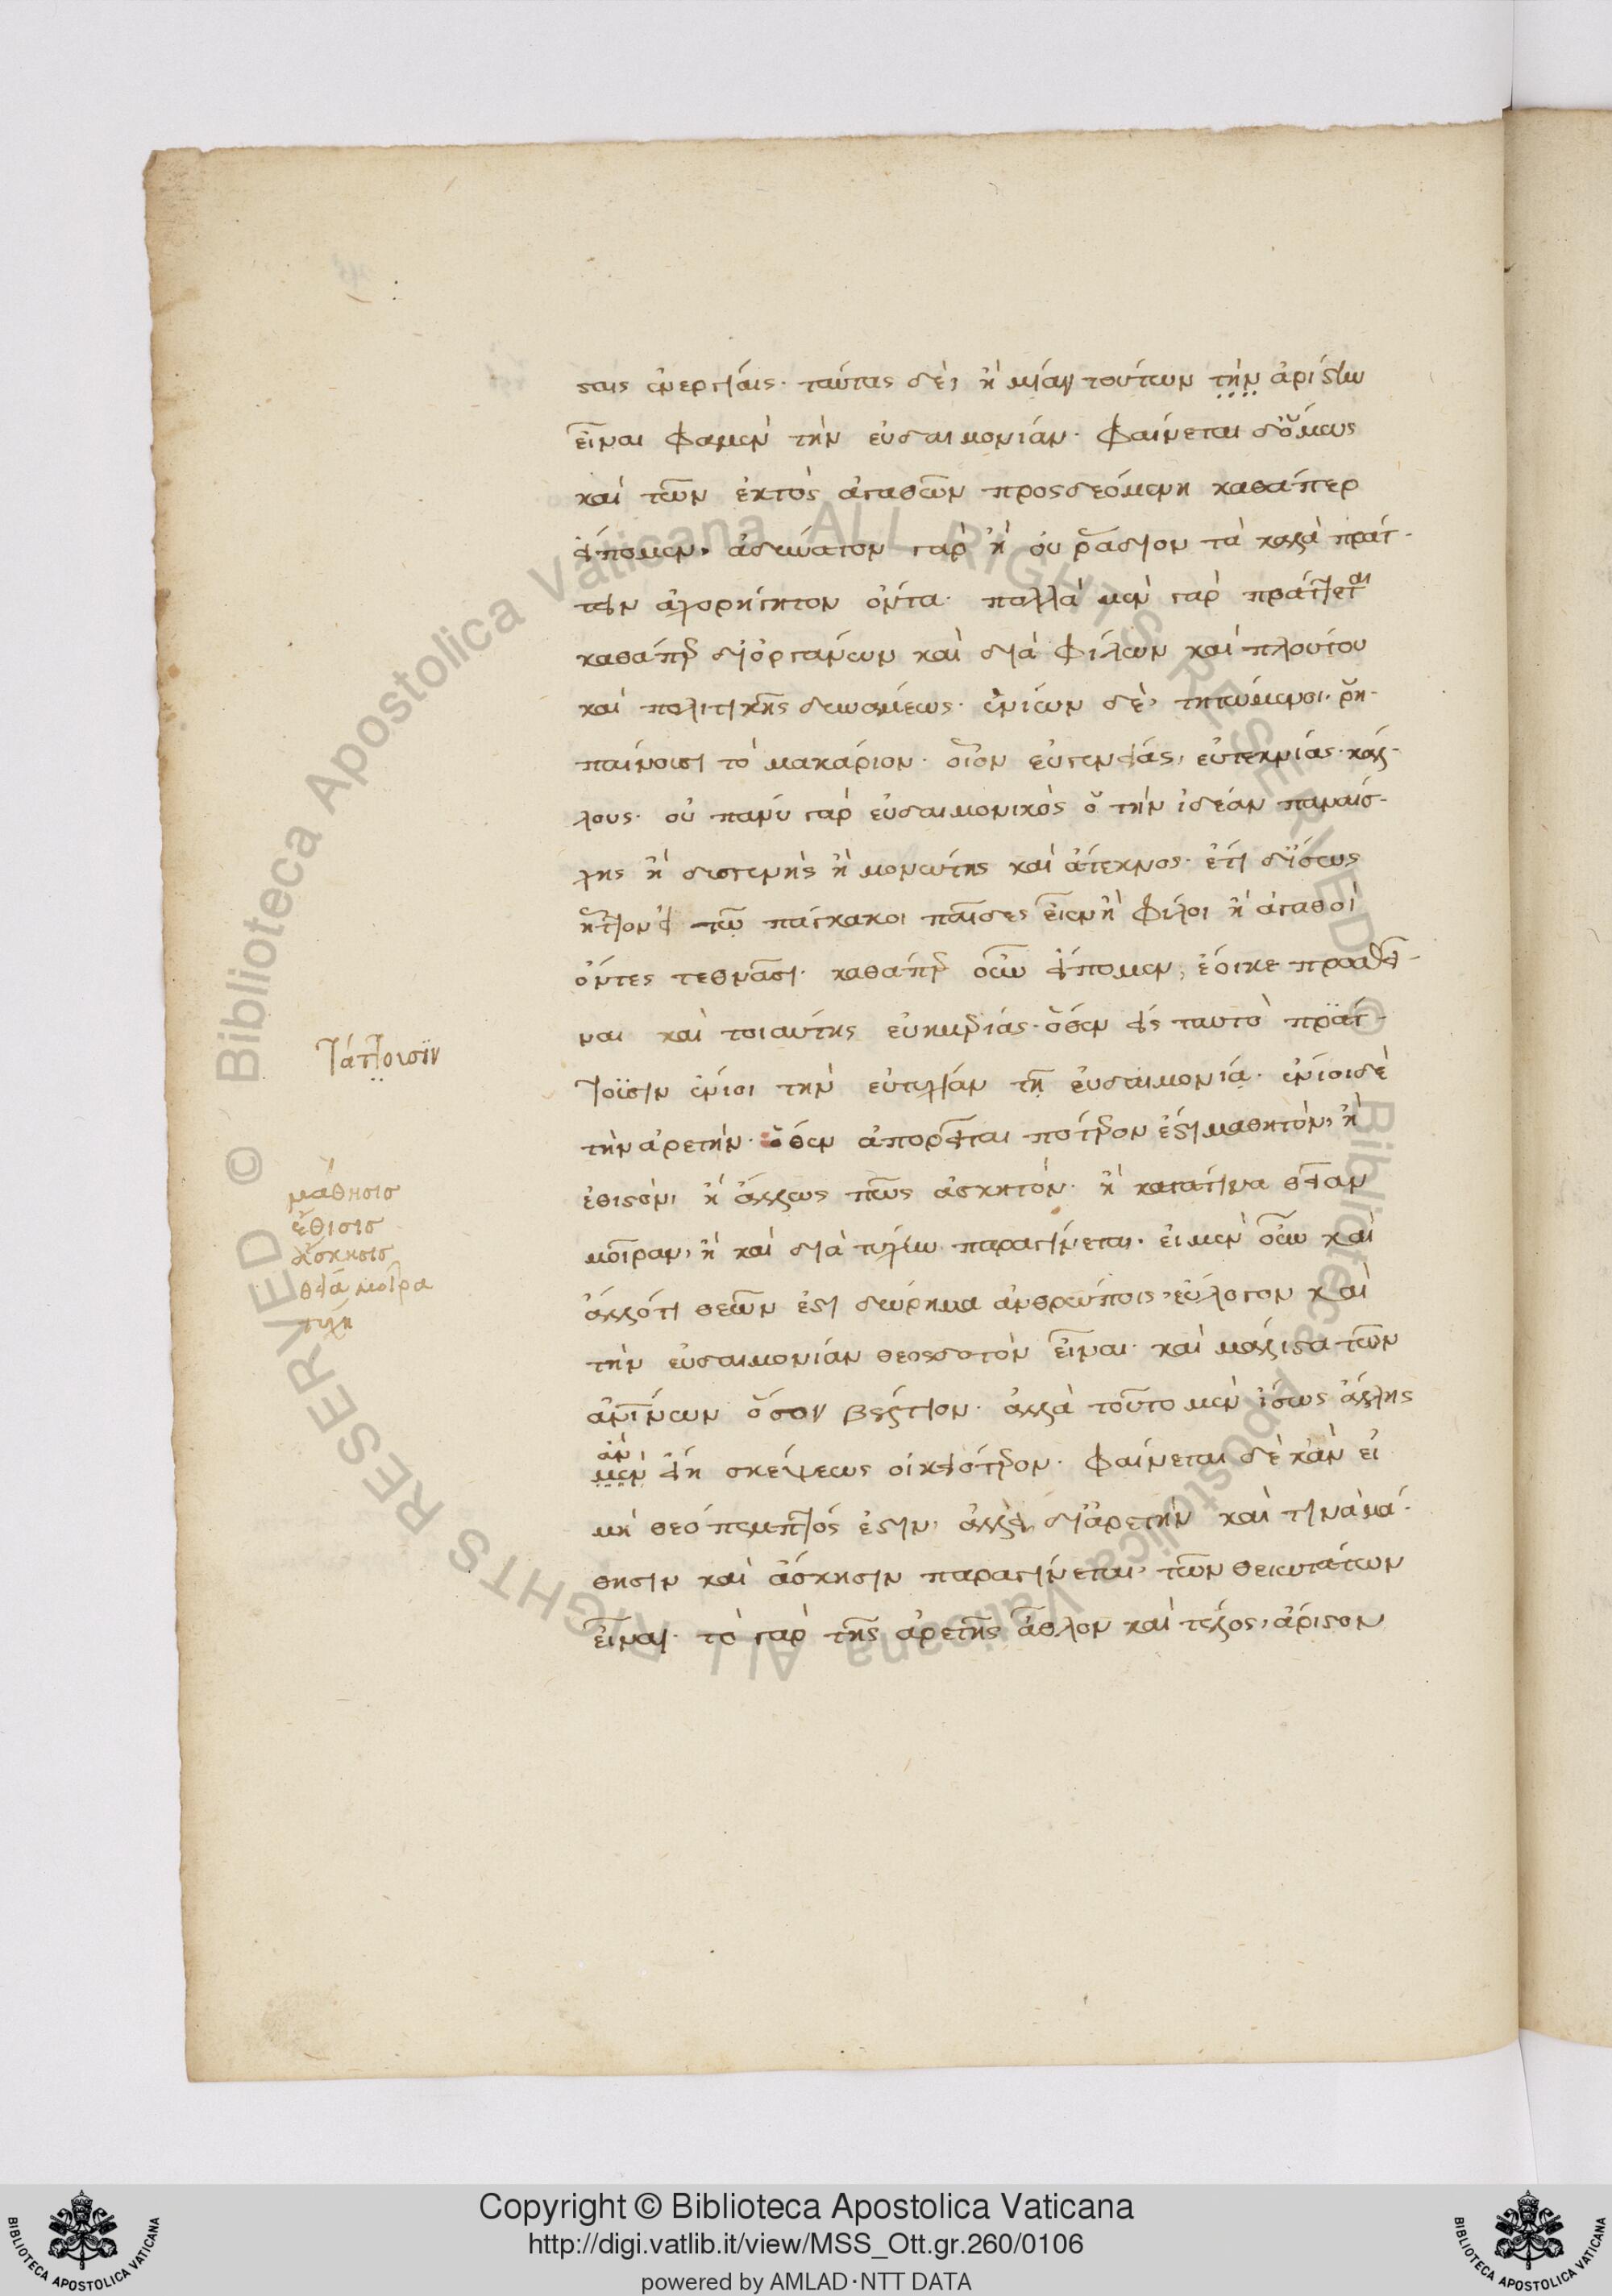 σταις ἐνεργείαις· ταύτας δὲ, ἢ μίαν τούτων τὴν ἀρίστην
εἶναι φαμὲν τὴν εὐδαιμονίαν· φαίνεται δ' ὅμως
καὶ τῶν ἐκτὸς ἀγαθῶν προσδεόμενη καθάπερ
εἴπομεν, ἀδύνατον γὰρ ἢ οὐ ῥάδιον τὰ καλὰ πράτ-
τειν ἀχορήγητον ὄντα· πολλὰ μὲν γὰρ πράττεται
καθάπερ δι' ὀργάνων καὶ διὰ φίλων καὶ πλούτου
καὶ πολιτικῆς δυνάμεως· ἐνίων δὲ, τητώμενοι ῥη-
παίνουσι τὸ μακάριον· οἷον εὐγενείας, εὐτεκνίας· κάλ-
λους· οὐ πάνυ γὰρ εὐδαιμονικὸς ὁ τὴν ἰδέαν παναίσ-
χης ἢ δυσγενὴς ἢ μονώτης καὶ ἄτεκνος· ἔτι δ' ἴσως
ἧττον εἰ τῳ πάγκακοι παῖδες εἶεν ἢ φίλοι ἢ ἀγαθοὶ
ὄντες τεθνᾶσι· καθάπερ οὖν εἴπομεν, ἔοικε προσδεῖ-
ναι καὶ τοιαύτης εὐημερίας· ὅθεν εἰς ταυτὸ πράτ-
τουσιν ἔνιοι τὴν εὐτυχίαν τῇ εὐδαιμονίᾳ· ἔνιοι δὲ
τάττουσιν
τὴν ἀρετήν· ὅθεν ἀπορεῖται πότερον ἐστὶ μαθητὸν, ἢ
ἐθιστὸν, ἢ ἄλλως πῶς ἀσκητόν· ἢ κατά τινα θείαν
μάθησις
ἔθισις
ἄσκησις
θεία μοῖρα
τύχη
μοῖραν, ἢ καὶ διὰ τύχην παραγίνεται· εἰ μὲν οὖν καὶ
ἄλλό τι θεῶν ἐστὶ δώρημα ἀνθρώποις, εὔλογον καὶ
τὴν εὐδαιμονίαν θεόσδοτον εἶναι· καὶ μάλιστα τῶν
ἀνθρωπίνων ὅσον βέλτιον· ἀλλὰ τοῦτο μὲν ἴσως ἄλλης
ἂν
μὲν εἴη σκέψεως οἰκειότερον· φαίνεται δὲ κἂν εἰ
μὴ θεόπεμπτός ἐστιν, ἀλλὰ δι' ἀρετὴν καὶ τινὰ μά-
θησιν καὶ ἄσκησιν παραγίνεται, τῶν θειοτάτων
εἶναι· τὸ γὰρ τῆς ἀρετῆς ἆθλον καὶ τέλος, ἄριστον